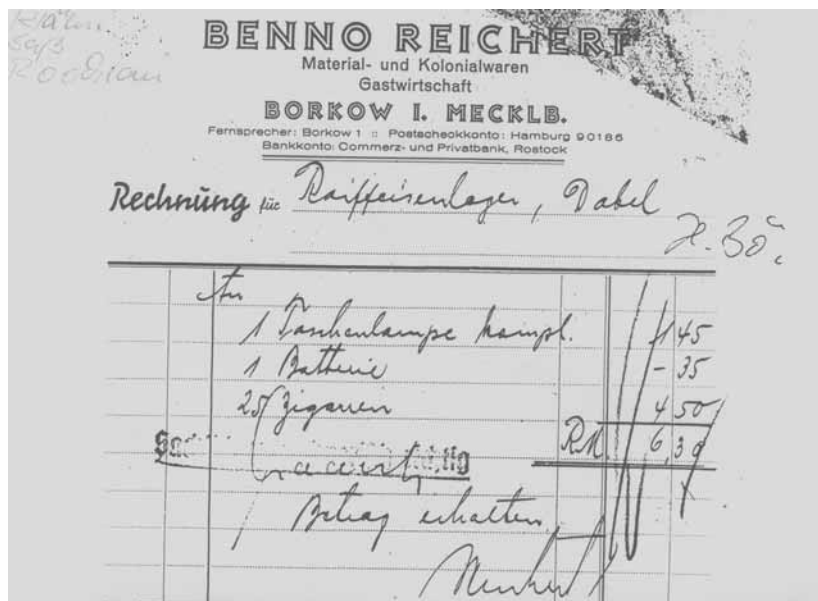 BENNO REICHERT
Material- und Kolonialwaren
Gastwirtschaft
BORKOW I. MECKLB.
Fernsprecher: Borkow 1 :: Postscheckkonto: Hamburg 90186
Bankkonto: Commerz- und Privatbank, Rostock
Rechnung für Raiffeisenlager, Dabel
H. Bö.
An
1 Taschenlampe kompl. 1 45
1 Batterie - 35
25 Zigarren 4 50
RM. 6,30
Betrag erhalten